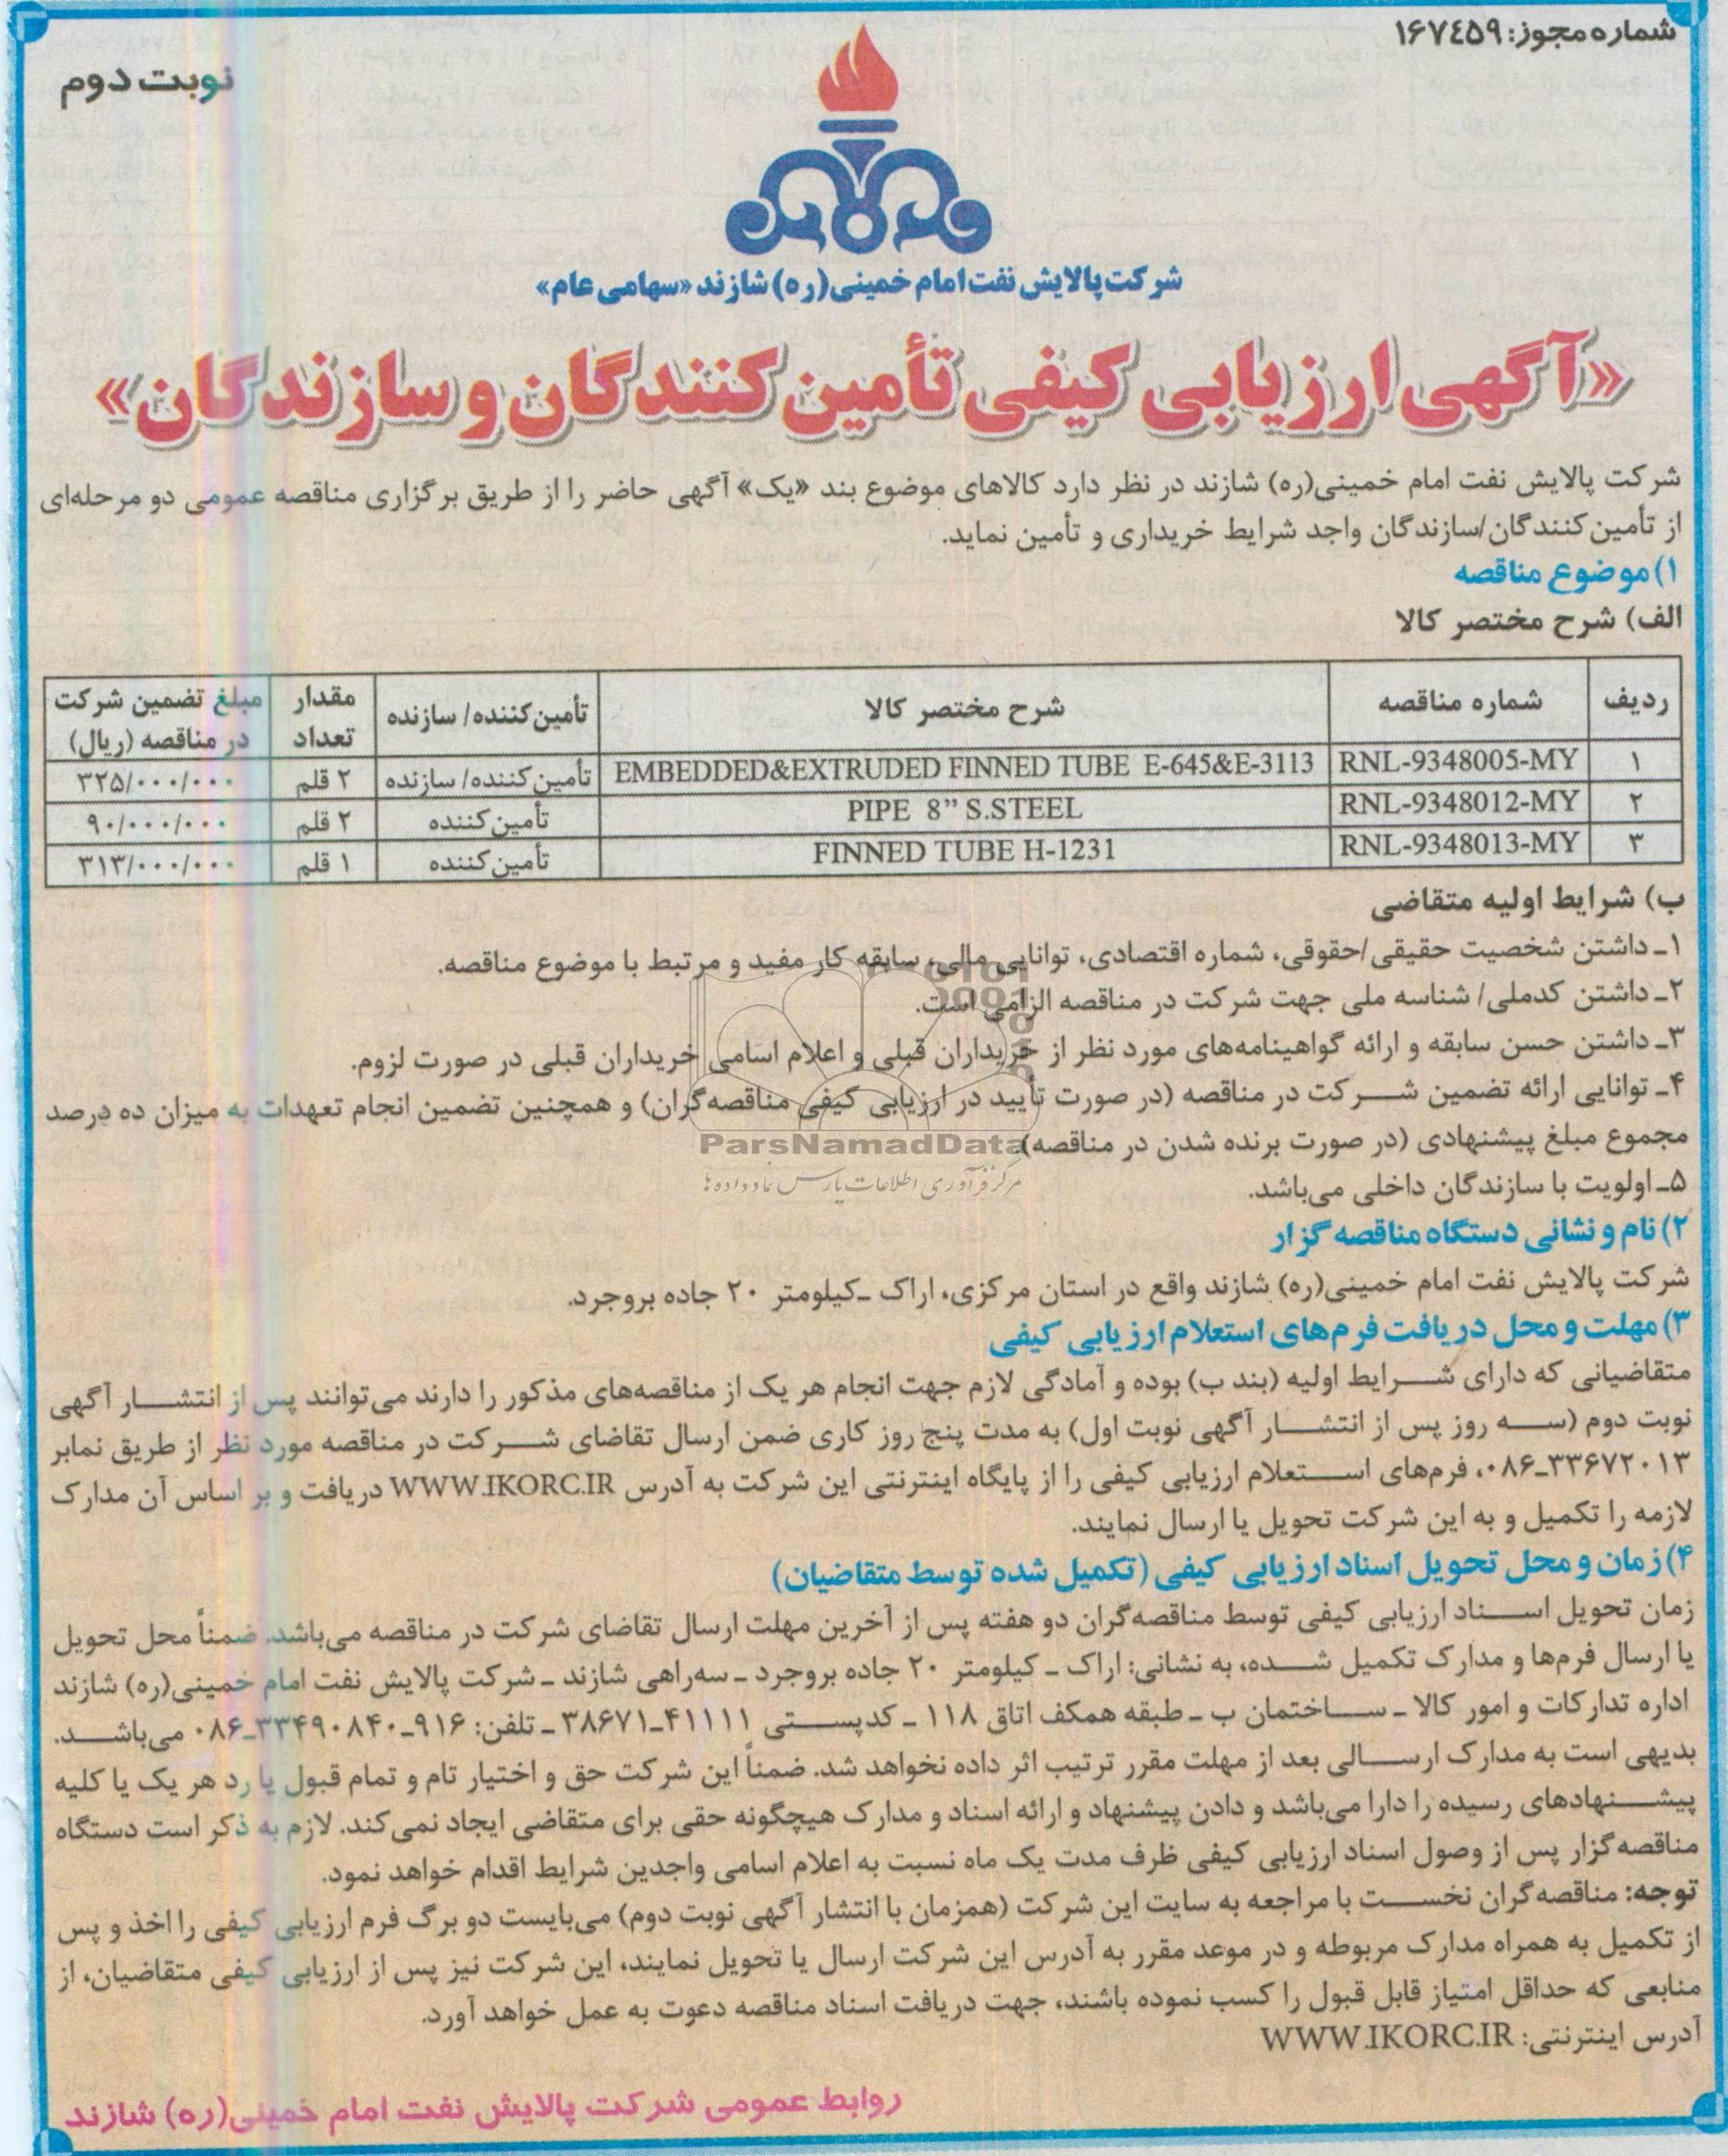 شماره مجوز: ۱۶۷۴۵۹
نوبت دوم
شرکت پالایش نفت امام خمینی(ره) شازند «سهامی عام»
«آگهی ارزیابی کیفی تأمین کنندگان و سازندگان»
شرکت پالایش نفت امام خمینی(ره) شازند در نظر دارد کالاهای موضوع بند «یک» آگهی حاضر را از طریق برگزاری مناقصه عمومی دو مرحله‌ای
از تأمین کنندگان/سازندگان واجد شرایط خریداری و تأمین نماید.
۱) موضوع مناقصه
الف) شرح مختصر کالا
ردیف | شماره مناقصه | شرح مختصر کالا | تأمین کننده/ سازنده | مقدار تعداد | مبلغ تضمین شرکت در مناقصه (ریال)
۱ | RNL-9348005-MY | EMBEDDED&EXTRUDED FINNED TUBE E-645&E-3113 | تأمین کننده/ سازنده | ۲ قلم | ۳۲۵/۰۰۰/۰۰۰
۲ | RNL-9348012-MY | PIPE 8” S.STEEL | تأمین کننده | ۲ قلم | ۹۰/۰۰۰/۰۰۰
۳ | RNL-9348013-MY | FINNED TUBE H-1231 | تأمین کننده | ۱ قلم | ۳۱۳/۰۰۰/۰۰۰
ب) شرایط اولیه متقاضی
۱ـ داشتن شخصیت حقیقی/حقوقی، شماره اقتصادی، توانایی مالی، سابقه کار مفید و مرتبط با موضوع مناقصه.
۲ـ داشتن کدملی/ شناسه ملی جهت شرکت در مناقصه الزامی است.
۳ـ داشتن حسن سابقه و ارائه گواهینامه‌های مورد نظر از خریداران قبلی و اعلام اسامی خریداران قبلی در صورت لزوم.
۴ـ توانایی ارائه تضمین شرکت در مناقصه (در صورت تأیید در ارزیابی کیفی مناقصه‌گران) و همچنین تضمین انجام تعهدات به میزان ده درصد
مجموع مبلغ پیشنهادی (در صورت برنده شدن در مناقصه)
۵ـ اولویت با سازندگان داخلی می‌باشد.
ParsNamadData
مرکز فرآوری اطلاعات پارس نماد داده‌ها
۲) نام و نشانی دستگاه مناقصه گزار
شرکت پالایش نفت امام خمینی(ره) شازند واقع در استان مرکزی، اراک ـ کیلومتر ۲۰ جاده بروجرد.
۳) مهلت و محل دریافت فرم‌های استعلام ارزیابی کیفی
متقاضیانی که دارای شرایط اولیه (بند ب) بوده و آمادگی لازم جهت انجام هر یک از مناقصه‌های مذکور را دارند می‌توانند پس از انتشار آگهی
نوبت دوم (سه روز پس از انتشار آگهی نوبت اول) به مدت پنج روز کاری ضمن ارسال تقاضای شرکت در مناقصه مورد نظر از طریق نمابر
۰۸۶-۳۳۶۷۲۰۱۳، فرم‌های استعلام ارزیابی کیفی را از پایگاه اینترنتی این شرکت به آدرس WWW.IKORC.IR دریافت و بر اساس آن مدارک
لازمه را تکمیل و به این شرکت تحویل یا ارسال نمایند.
۴) زمان و محل تحویل اسناد ارزیابی کیفی (تکمیل شده توسط متقاضیان)
زمان تحویل اسناد ارزیابی کیفی توسط مناقصه‌گران دو هفته پس از آخرین مهلت ارسال تقاضای شرکت در مناقصه می‌باشد. ضمناً محل تحویل
یا ارسال فرم‌ها و مدارک تکمیل شده، به نشانی: اراک ـ کیلومتر ۲۰ جاده بروجرد ـ سه‌راهی شازند ـ شرکت پالایش نفت امام خمینی(ره) شازند
اداره تدارکات و امور کالا ـ ساختمان ب ـ طبقه همکف اتاق ۱۱۸ ـ کدپستی ۴۱۱۱۱-۳۸۶۷۱ ـ تلفن: ۹۱۶-۰۸۶-۳۳۴۹۰۸۴۰ می‌باشد.
بدیهی است به مدارک ارسالی بعد از مهلت مقرر ترتیب اثر داده نخواهد شد. ضمناً این شرکت حق و اختیار تام و تمام قبول یا رد هر یک یا کلیه
پیشنهادهای رسیده را دارا می‌باشد و دادن پیشنهاد و ارائه اسناد و مدارک هیچگونه حقی برای متقاضی ایجاد نمی‌کند. لازم به ذکر است دستگاه
مناقصه‌گزار پس از وصول اسناد ارزیابی کیفی ظرف مدت یک ماه نسبت به اعلام اسامی واجدین شرایط اقدام خواهد نمود.
توجه: مناقصه‌گران نخست با مراجعه به سایت این شرکت (همزمان با انتشار آگهی نوبت دوم) می‌بایست دو برگ فرم ارزیابی کیفی را اخذ و پس
از تکمیل به همراه مدارک مربوطه و در موعد مقرر به آدرس این شرکت ارسال یا تحویل نمایند، این شرکت نیز پس از ارزیابی کیفی متقاضیان، از
منابعی که حداقل امتیاز قابل قبول را کسب نموده باشند، جهت دریافت اسناد مناقصه دعوت به عمل خواهد آورد.
آدرس اینترنتی: WWW.IKORC.IR
روابط عمومی شرکت پالایش نفت امام خمینی(ره) شازند